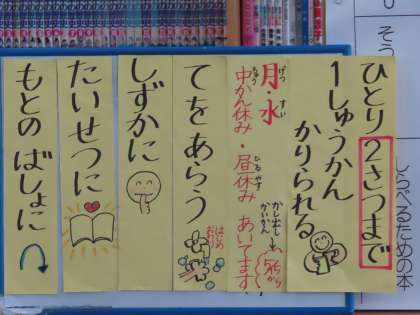 ひとり2さつまで
1しゅうかん
かりられる
月・水
げつ
すい
中かん休み・昼休み あいてます
ちゅう
ひる やす
かし出し
かいかん
てをあらう
はじめ
おわり
しずかに
たいせつに
もとの ばしょに
しらべるための本
そう